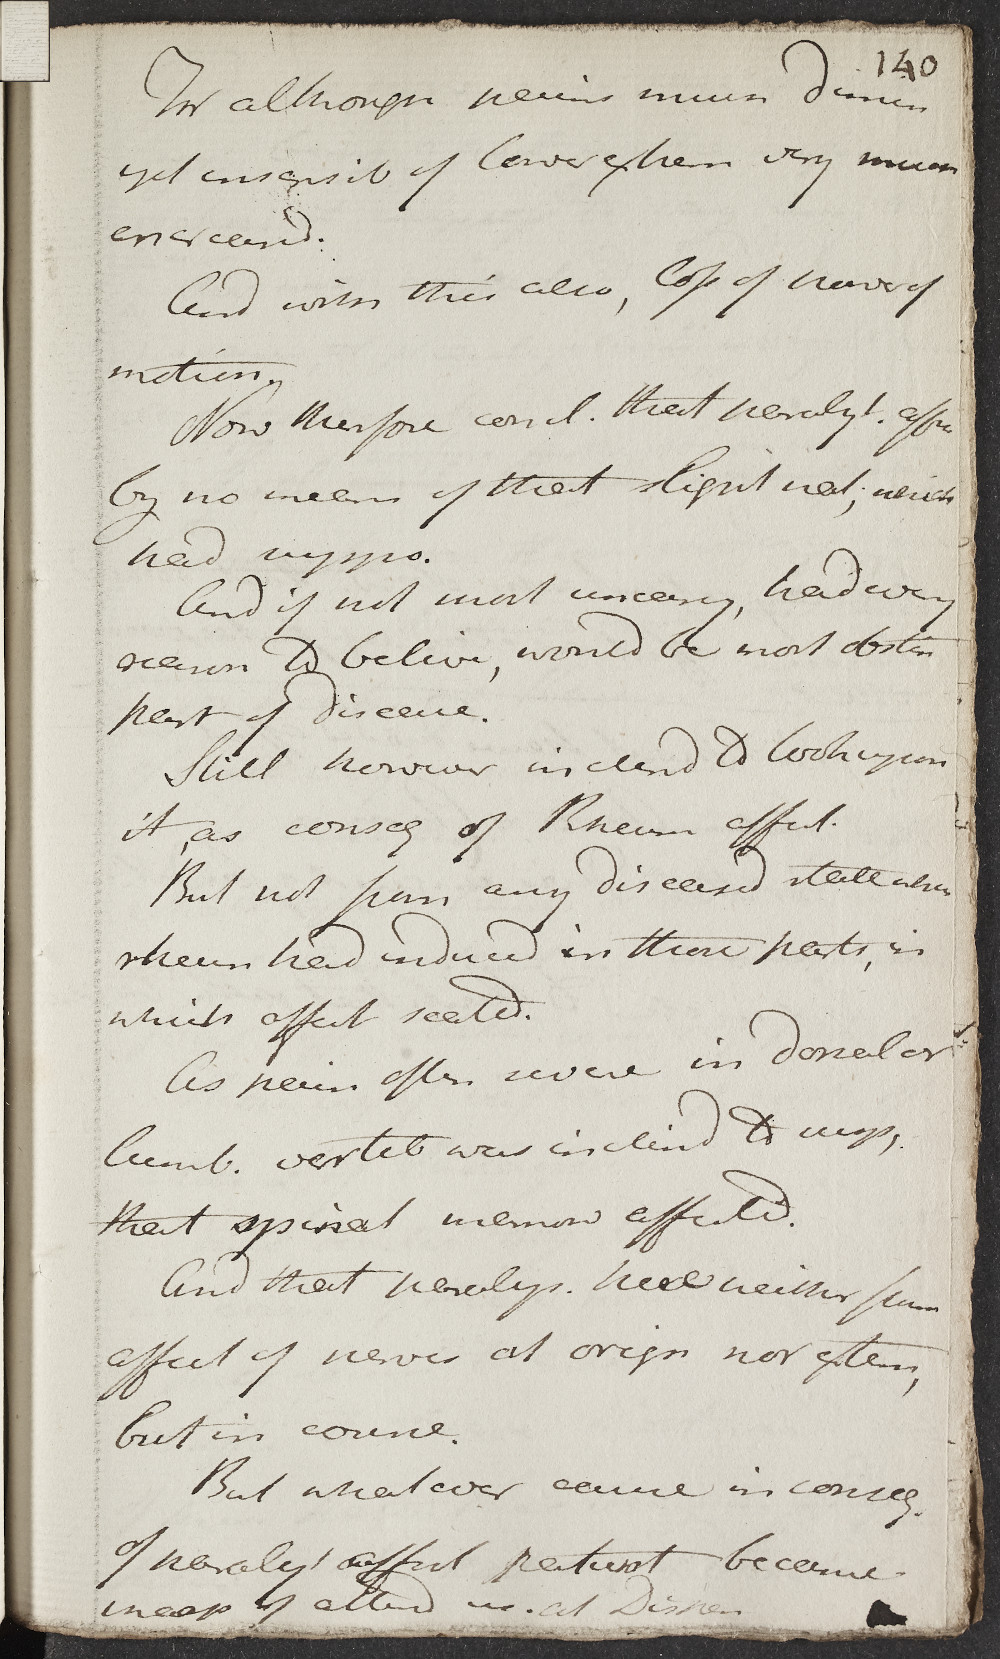 140
For although pains much dimin
yet insensib of lower extrem very much
encreased.
And with this also, loss of power of
motion.
Now therefore concl. that paralyt. affec
by no means of that slight nat, which
had suppo.
And if not most uncomm, had every
reason to believe, would be most obstin
part of disease.
Still however inclined to look upon
it, as conseq of Rheum affect.
But not from any diseased state when
rheum had induced in those parts, in
which affect seated.
As pain often severe in dorsal or
lumb. verteb was inclined to supp,
that spinal marrow affected.
And that paralys. here neither from
affect of nerves at origin nor extrem,
but in course.
But whatever cause in conseq.
of paralyt affect patient became
incap of attend us. at Dispen